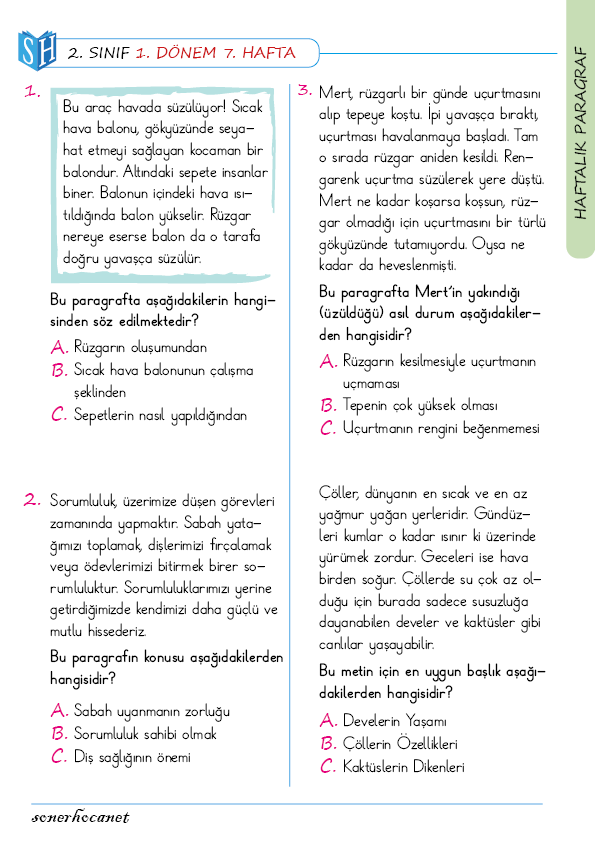 SH
2. SINIF 1. DÖNEM 7. HAFTA
HAFTALIK PARAGRAF
1.
Bu araç havada süzülüyor! Sıcak
hava balonu, gökyüzünde seya-
hat etmeyi sağlayan kocaman bir
balondur. Altındaki sepete insanlar
biner. Balonun içindeki hava ısı-
tıldığında balon yükselir. Rüzgar
nereye eserse balon da o tarafa
doğru yavaşça süzülür.
Bu paragrafta aşağıdakilerin hangi-
sinden söz edilmektedir?
A. Rüzgarın oluşumundan
B. Sıcak hava balonunun çalışma
şeklinden
C. Sepetlerin nasıl yapıldığından
2. Sorumluluk, üzerimize düşen görevleri
zamanında yapmaktır. Sabah yata-
ğımızı toplamak, dişlerimizi fırçalamak
veya ödevlerimizi bitirmek birer so-
rumluluktur. Sorumluluklarımızı yerine
getirdiğimizde kendimizi daha güçlü ve
mutlu hissederiz.
Bu paragrafın konusu aşağıdakilerden
hangisidir?
A. Sabah uyanmanın zorluğu
B. Sorumluluk sahibi olmak
C. Diş sağlığının önemi
3. Mert, rüzgarlı bir günde uçurtmasını
alıp tepeye koştu. İpi yavaşça bıraktı,
uçurtması havalanmaya başladı. Tam
o sırada rüzgar aniden kesildi. Ren-
garenk uçurtma süzülerek yere düştü.
Mert ne kadar koşarsa koşsun, rüz-
gar olmadığı için uçurtmasını bir türlü
gökyüzünde tutamıyordu. Oysa ne
kadar da heveslenmişti.
Bu paragrafta Mert'in yakındığı
(üzüldüğü) asıl durum aşağıdakiler-
den hangisidir?
A. Rüzgarın kesilmesiyle uçurtmanın
uçmaması
B. Tepenin çok yüksek olması
C. Uçurtmanın rengini beğenmemesi
Çöller, dünyanın en sıcak ve en az
yağmur yağan yerleridir. Gündüz-
leri kumlar o kadar ısınır ki üzerinde
yürümek zordur. Geceleri ise hava
birden soğur. Çöllerde su çok az ol-
duğu için burada sadece susuzluğa
dayanabilen develer ve kaktüsler gibi
canlılar yaşayabilir.
Bu metin için en uygun başlık aşağı-
dakilerden hangisidir?
A. Develerin Yaşamı
B. Çöllerin Özellikleri
C. Kaktüslerin Dikenleri
sonerhocanet